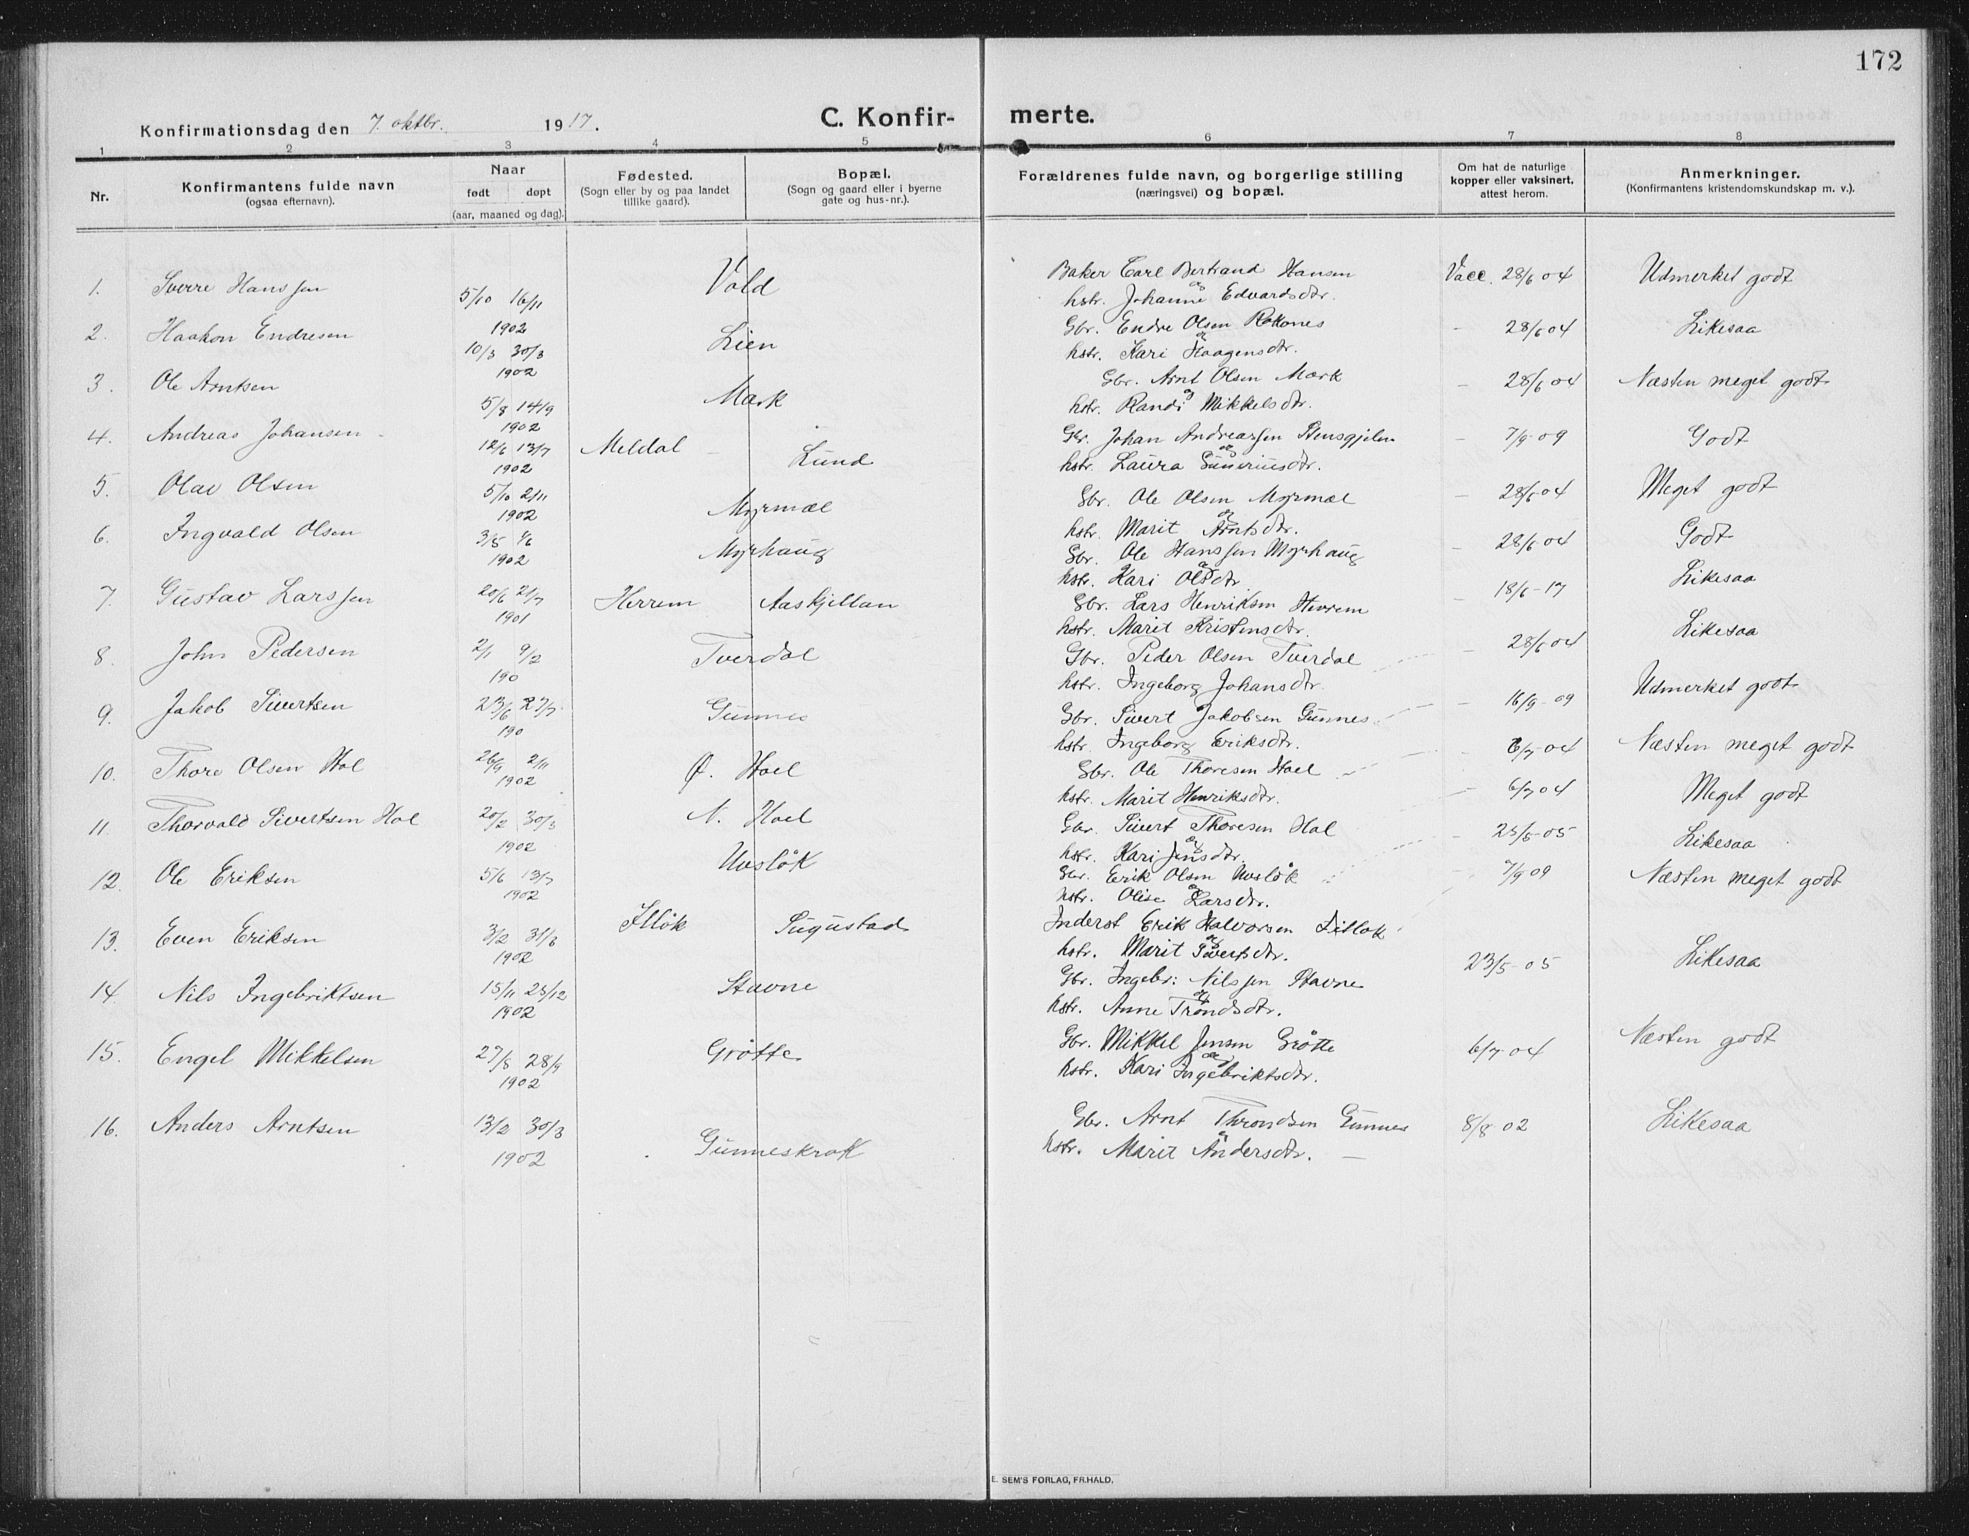 172
Konfirmationsdag den 7. oktbr. 1917. C. Konfir- merte.
1 2 3 4 5 6 7 8
Nr. Konfirmantens fulde navn (ogsaa efternavn). Naar født døpt (aar, maaned og dag). Fødested. (Sogn eller by og paa landet tillike gaard). Bopæl. (Sogn og gaard eller i byerne gate og hus-nr.). Forældrenes fulde navn, og borgerlige stilling (næringsvei) og bopæl. Om hat de naturlige kopper eller vaksinert, attest herom. Anmerkninger. (Konfirmantens kristendomskundskap m. v.).
1. Sverre Hanssen 5/10 16/11 1902 Vold Baker Carl Bertrand Hansen Vacc. 28/6 04 Udmerket godt
og hstr. Johanne Edvardsdtr.
2. Haakon Endresen 10/3 30/3 1902 Lien Gbr. Endre Olsen Rokones - 28/6 04 Likesaa
og hstr. Kari Haagensdtr.
3. Ole Arntsen 5/8 14/9 1902 Mærk Gbr. Arnt Olsen Mærk - 28/6 04 Næsten meget godt
og hstr. Randi Mikkelsdtr.
4. Andreas Johansen 12/6 13/7 1902 Meldal - Lund Gbr. Johan Andreassen Stensgjelen - 7/9 09 Godt
og hstr. Laura Guneriusdtr.
5. Olav Olsen 5/10 2/11 1902 Myrmæl Gbr. Ole Olsen Myrmæl - 28/6 04 Meget godt
og hstr. Marit Arntsdtr.
6. Ingvald Olsen 3/5 1/6 1902 Myrhaug Gbr. Ole Hanssen Myrhaug - 28/6 04 Godt
og hstr. Kari Olsdtr.
7. Gustav Larssen 20/6 21/7 1901 Herrem Aaskjellan Gbr. Lars Henriksen Herrem - 18/6-17 Likesaa
hstr. Marit Kristensdtr.
8. John Pedersen 2/1 9/2 190 Tverdal Gbr. Peder Olsen Tverdal 28/6 04 Likesaa
hstr. Ingeborg Johansdtr.
9. Jakob Sivertsen 23/6 27/7 190 Gunnes Gbr. Sivert Jakobsen Gunnes - 16/9-09 Udmerket godt
hstr. Ingeborg Eriksdtr.
10. Thore Olsen Hol 26/9 2/11 1902 Ø. Hoel Gbr. Ole Thoresen Hoel - 6/7-04 Næsten meget godt
hstr. Marit Henriksdtr.
11. Thorvald Sivertsen Hol 20/2 30/3 1902 N. Hoel Gbr. Sivert Thoresen Hol - 6/7 04 Meget godt
og hstr. Kari Jensdtr.
12. Ole Eriksen 5/6 13/7 1902 Uvsløk Gbr. Erik Olsen Uvsløk - 25/5-05 Likesaa
og hstr. Olise Larsdtr.
13. Even Eriksen 3/2 31/3 1902 Illøk Sugustad Inderst Erik Halvorsen 7/9 09 Næsten meget godt
og hstr. Marit Sivertsdtr.
14. Nils Ingebriktsen 15/11 25/12 1902 Stavne Gbr. Ingebr: Nilssen Stavne 23/5-05 Likesaa
og hstr. Anne Trondsdtr.
15. Engel Mikkelsen 27/8 28/9 1902 Grötte Gbr. Mikkel Jensen Grötte 6/7-04 Næsten godt
og hstr. Kari Ingebriktsdtr.
16. Anders Arntsen 13/2 30/3 1902 Gunneskrok Gbr. Arnt Throndsen Gunnes 8/8 02 Likesaa
og hstr. Marit Andersdtr. —
E. SEM'S FORLAG, FR.HALD.